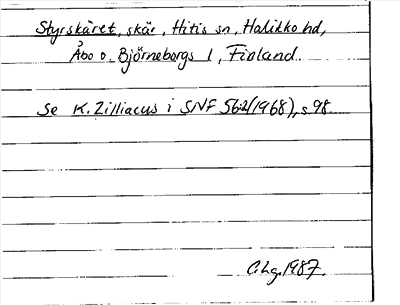 Styrskäret, skär, Hitis sn, Halikko hd,
Åbo o. Björneborgs l, Finland.
Se K. Zilliacus i SNF 56:2(1968), s 98.
C.Lg. 1987.